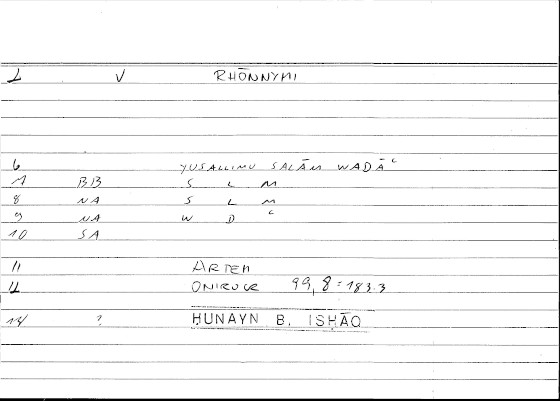 1 V RHŌNNYMI
6 YUSALLIMU SALĀM WADĀʿ
7 BB S L M
8 NA S L M
9 NA W D ʿ
10 SA
11 ARTEM
12 ONIROCR 99,8 = 183.3
14 ? ḤUNAYN B. ISḤĀQ